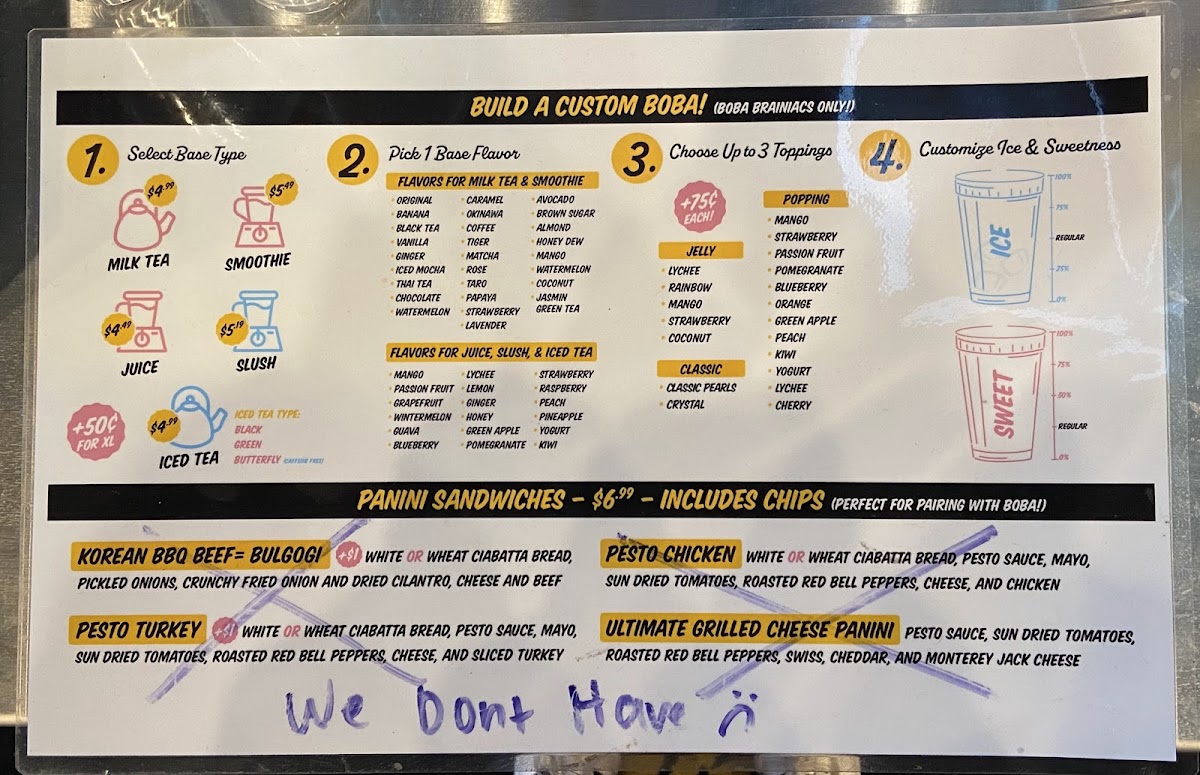 BUILD A CUSTOM BOBA! (BOBA BRAINIACS ONLY!)
1. Select Base Type
$4.99
MILK TEA
$5.49
SMOOTHIE
$4.49
JUICE
$5.19
SLUSH
+50¢
FOR XL
$4.99
ICED TEA
ICED TEA TYPE:
BLACK
GREEN
BUTTERFLY (CAFFEINE FREE)
2. Pick 1 Base Flavor
FLAVORS FOR MILK TEA & SMOOTHIE
• ORIGINAL
• BANANA
• BLACK TEA
• VANILLA
• GINGER
• ICED MOCHA
• THAI TEA
• CHOCOLATE
• WATERMELON
• CARAMEL
• OKINAWA
• COFFEE
• TIGER
• MATCHA
• ROSE
• TARO
• PAPAYA
• STRAWBERRY
LAVENDER
• AVOCADO
• BROWN SUGAR
• ALMOND
• HONEY DEW
• MANGO
• WATERMELON
• COCONUT
• JASMIN
GREEN TEA
FLAVORS FOR JUICE, SLUSH, & ICED TEA
• MANGO
• PASSION FRUIT
• GRAPEFRUIT
• WINTERMELON
• GUAVA
• BLUEBERRY
• LYCHEE
• LEMON
• GINGER
• HONEY
• GREEN APPLE
• POMEGRANATE
• STRAWBERRY
• RASPBERRY
• PEACH
• PINEAPPLE
• YOGURT
• KIWI
3. Choose Up to 3 Toppings
+75¢
EACH!
JELLY
• LYCHEE
• RAINBOW
• MANGO
• STRAWBERRY
• COCONUT
CLASSIC
• CLASSIC PEARLS
• CRYSTAL
POPPING
• MANGO
• STRAWBERRY
• PASSION FRUIT
• POMEGRANATE
• BLUEBERRY
• ORANGE
• GREEN APPLE
• PEACH
• KIWI
• YOGURT
• LYCHEE
• CHERRY
4. Customize Ice & Sweetness
ICE
100%
75%
REGULAR
25%
0%
SWEET
100%
75%
50%
REGULAR
0%
PANINI SANDWICHES – $6.99 – INCLUDES CHIPS (PERFECT FOR PAIRING WITH BOBA!)
KOREAN BBQ BEEF= BULGOGI +$1 WHITE OR WHEAT CIABATTA BREAD,
PICKLED ONIONS, CRUNCHY FRIED ONION AND DRIED CILANTRO, CHEESE AND BEEF
PESTO TURKEY +$1 WHITE OR WHEAT CIABATTA BREAD, PESTO SAUCE, MAYO,
SUN DRIED TOMATOES, ROASTED RED BELL PEPPERS, CHEESE, AND SLICED TURKEY
PESTO CHICKEN WHITE OR WHEAT CIABATTA BREAD, PESTO SAUCE, MAYO,
SUN DRIED TOMATOES, ROASTED RED BELL PEPPERS, CHEESE, AND CHICKEN
ULTIMATE GRILLED CHEESE PANINI PESTO SAUCE, SUN DRIED TOMATOES,
ROASTED RED BELL PEPPERS, SWISS, CHEDDAR, AND MONTEREY JACK CHEESE
We Dont Have